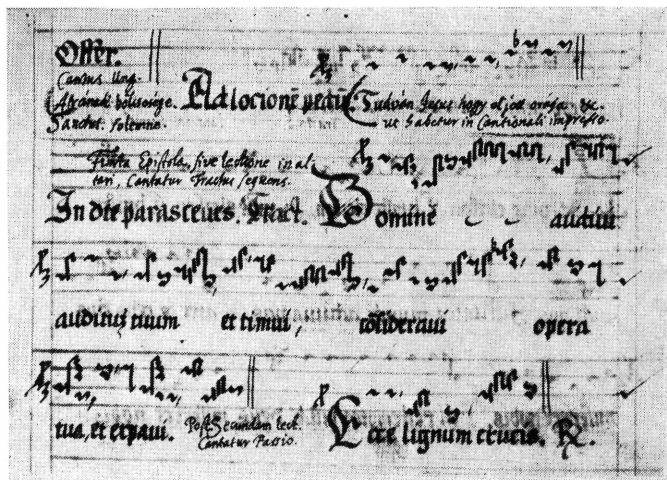 Offer.
Cantus Ung.
Sanctus solenne.
Ad locionē pedū. Tudván Jesus hogy el jött órája &c.
ut habetur in Cantionali impresso.
Finita Epistola, sive lectione in al-
tari, Cantatur Tractus sequens.
In die parasceves. Tract. Domine audivi
auditū tuum et timui, cōsideravi opera
tua, et expavi. Post Secundam lect.
Cantatur Passio.
Ecce lignum crucis. ℟.